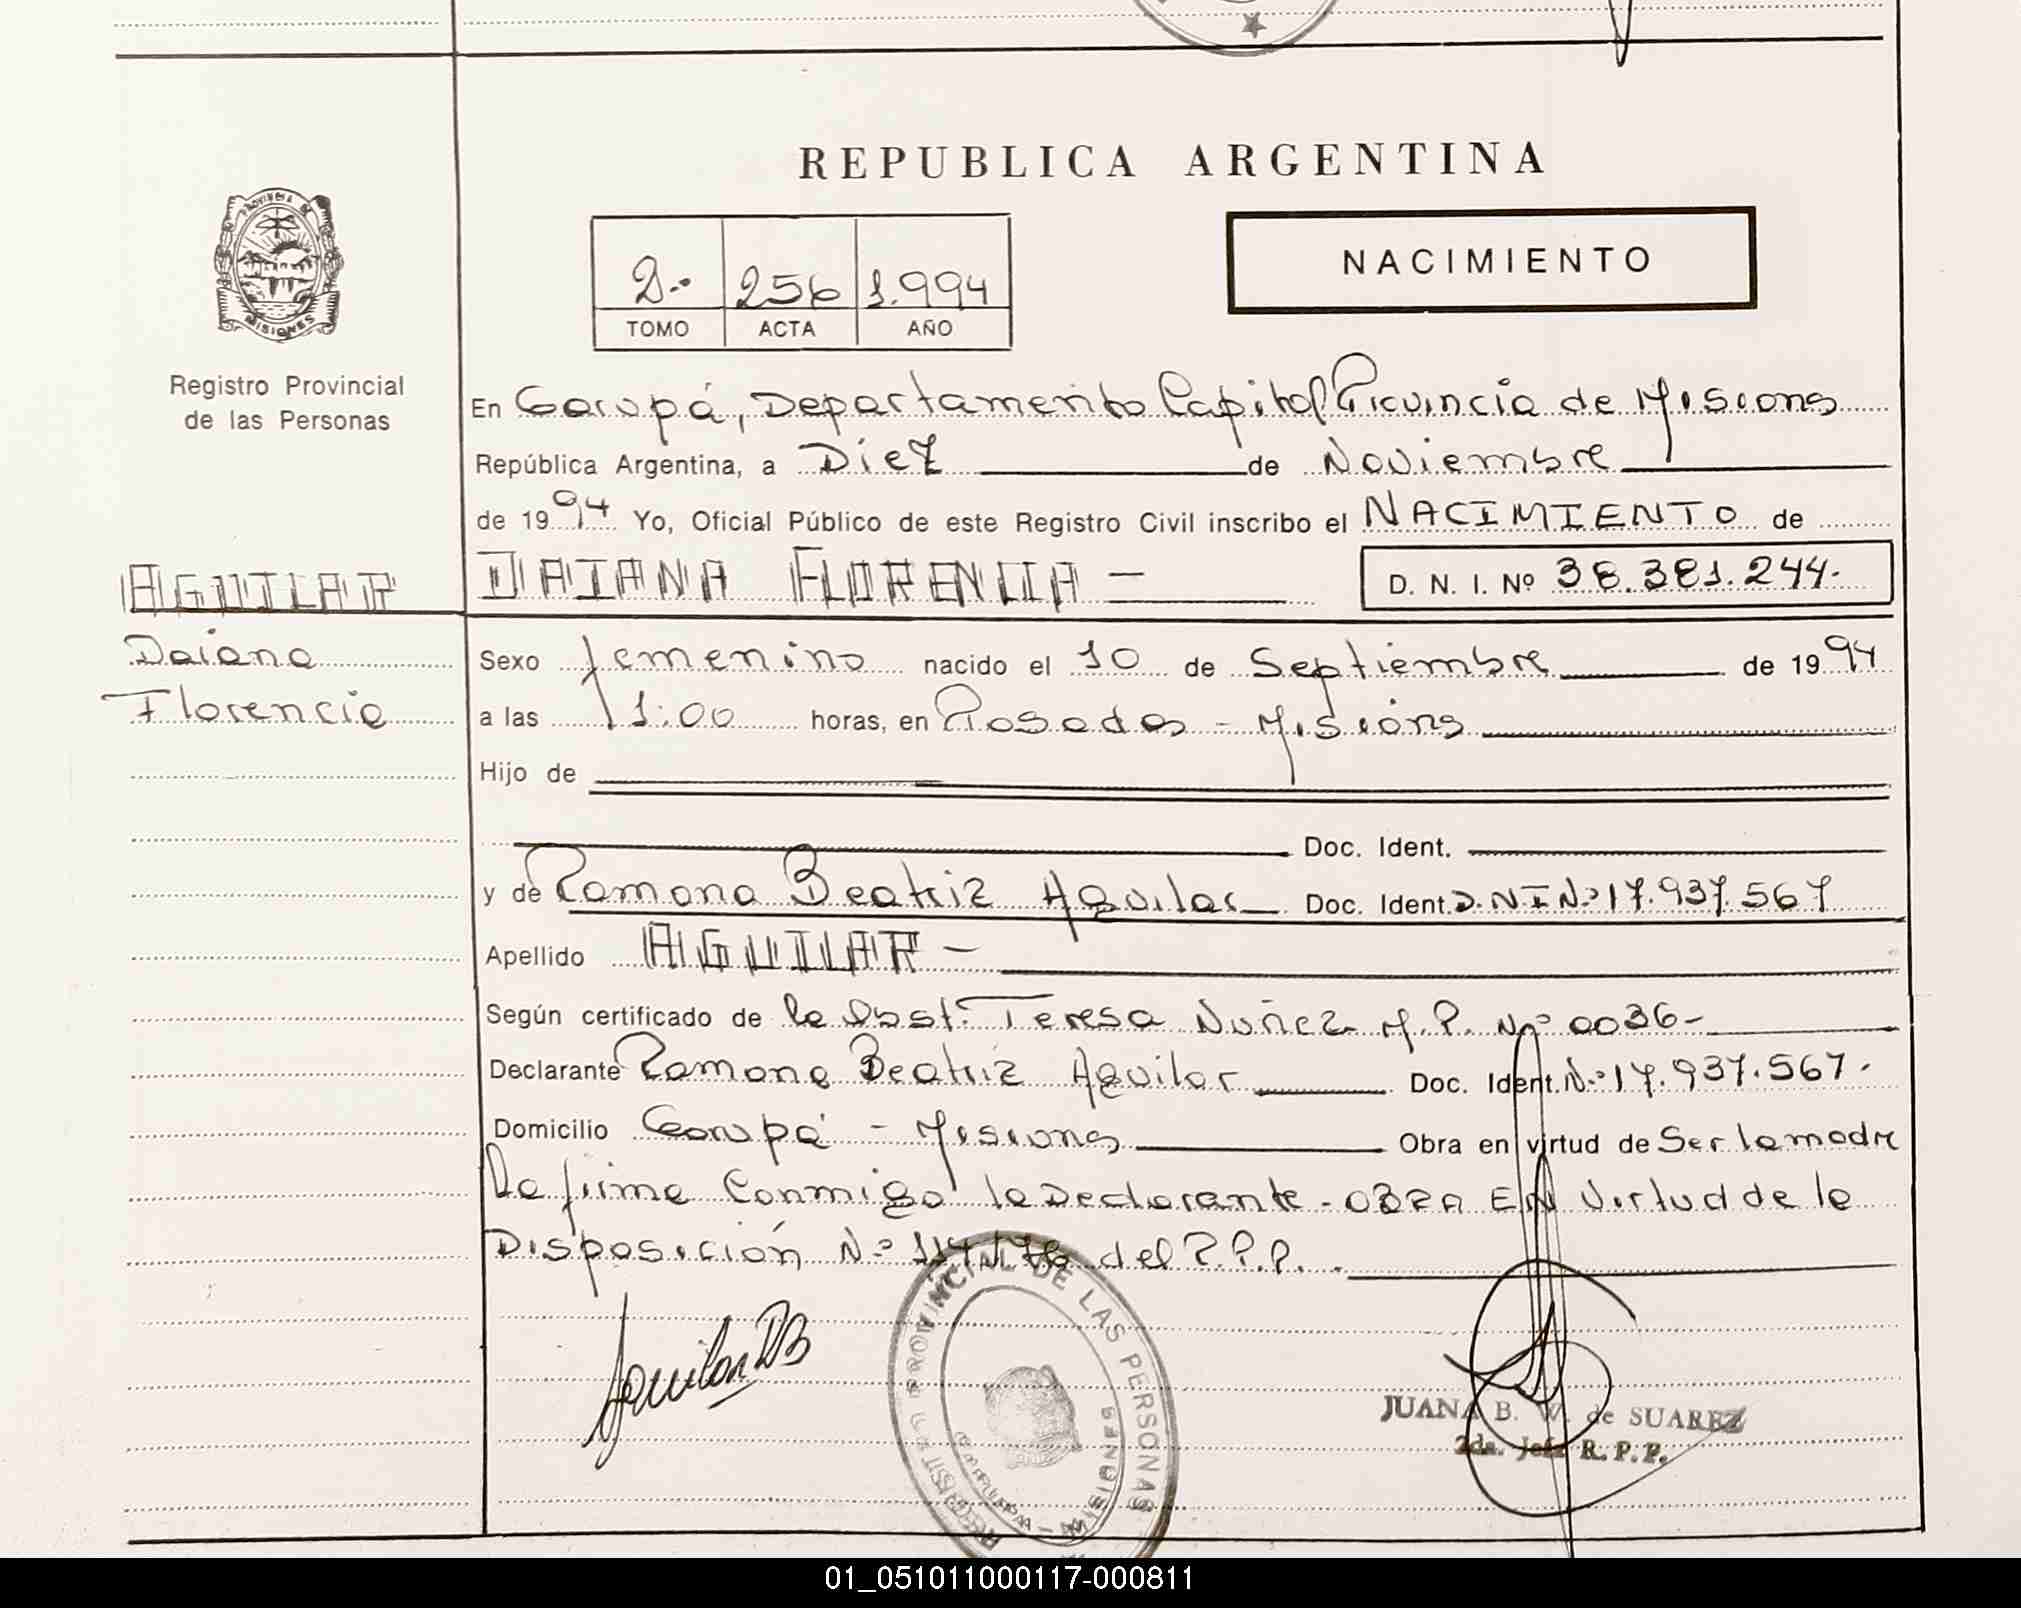 REPUBLICA ARGENTINA
PROVINCIA DE
MISIONES
Registro Provincial
de las Personas
2.- 256 1.994
TOMO ACTA AÑO
NACIMIENTO
En Garupá, Departamento Capital Provincia de Misiones
República Argentina, a Diez de Noviembre
de 1994 Yo, Oficial Público de este Registro Civil inscribo el NACIMIENTO de
AGUILAR
DAIANA FLORENCIA -
D. N. I. Nº 38.381.244.
Daiana
Florencia
Sexo femenino nacido el 10 de Septiembre de 1994
a las 11:00 horas, en Posadas - Misiones
Hijo de
Doc. Ident.
y de Ramona Beatriz Aguilar Doc. Ident. D.N.I Nº 17.937.567
Apellido AGUILAR -
Según certificado de la Obst. Teresa Nuñez M.P. Nº 0036-
Declarante Ramona Beatriz Aguilar Doc. Ident. Nº 17.937.567.
Domicilio Garupá - Misiones Obra en virtud de Ser la madre
La firma Conmigo la Declarante - OBRA EN Virtud de la
Disposición Nº del R.P.P.
Aguilar RB
PROVINCIAL DE LAS PERSONAS
MISIONES
JUANA B. W. de SUAREZ
2da. Jefe R.P.P.
01_051011000117-000811